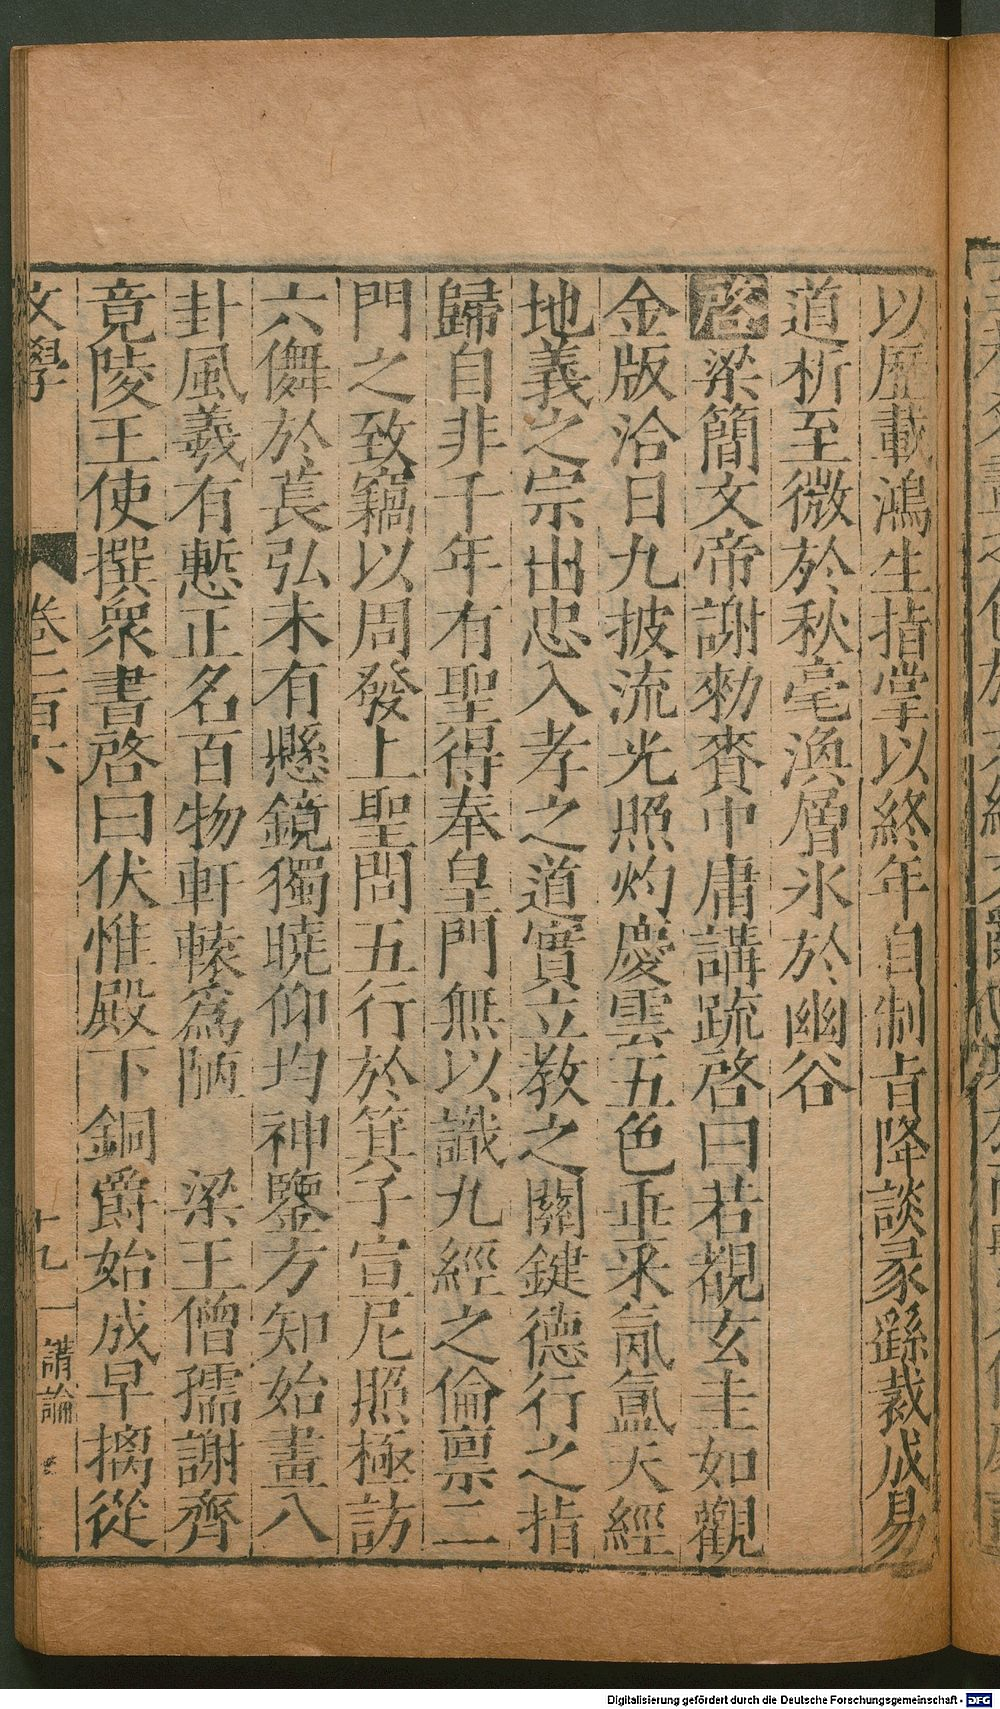 以歷載鴻生指掌以終年自制旨降談彖繇裁成易
道析至微於秋毫渙層氷於幽谷
啓梁簡文帝謝勑賚中庸講疏啓曰若覩玄圭如觀
金版洽日九披流光照灼慶雲五色垂采氤氳天經
地義之宗出忠入孝之道實立教之關鍵德行之指
歸自非千年有聖得奉皇門無以識九經之倫稟二
門之致竊以周發上聖問五行於箕子宣尼照極訪
六儛於萇弘未有懸鏡獨曉仰均神鑒方知始畫八
卦風羲有慙正名百物軒轅爲陋 梁王僧孺謝齊
竟陵王使撰衆書啓曰伏惟殿下銅爵始成早摛從
文學 卷二百六 十九 講論
Digitalisierung gefördert durch die Deutsche Forschungsgemeinschaft - DFG